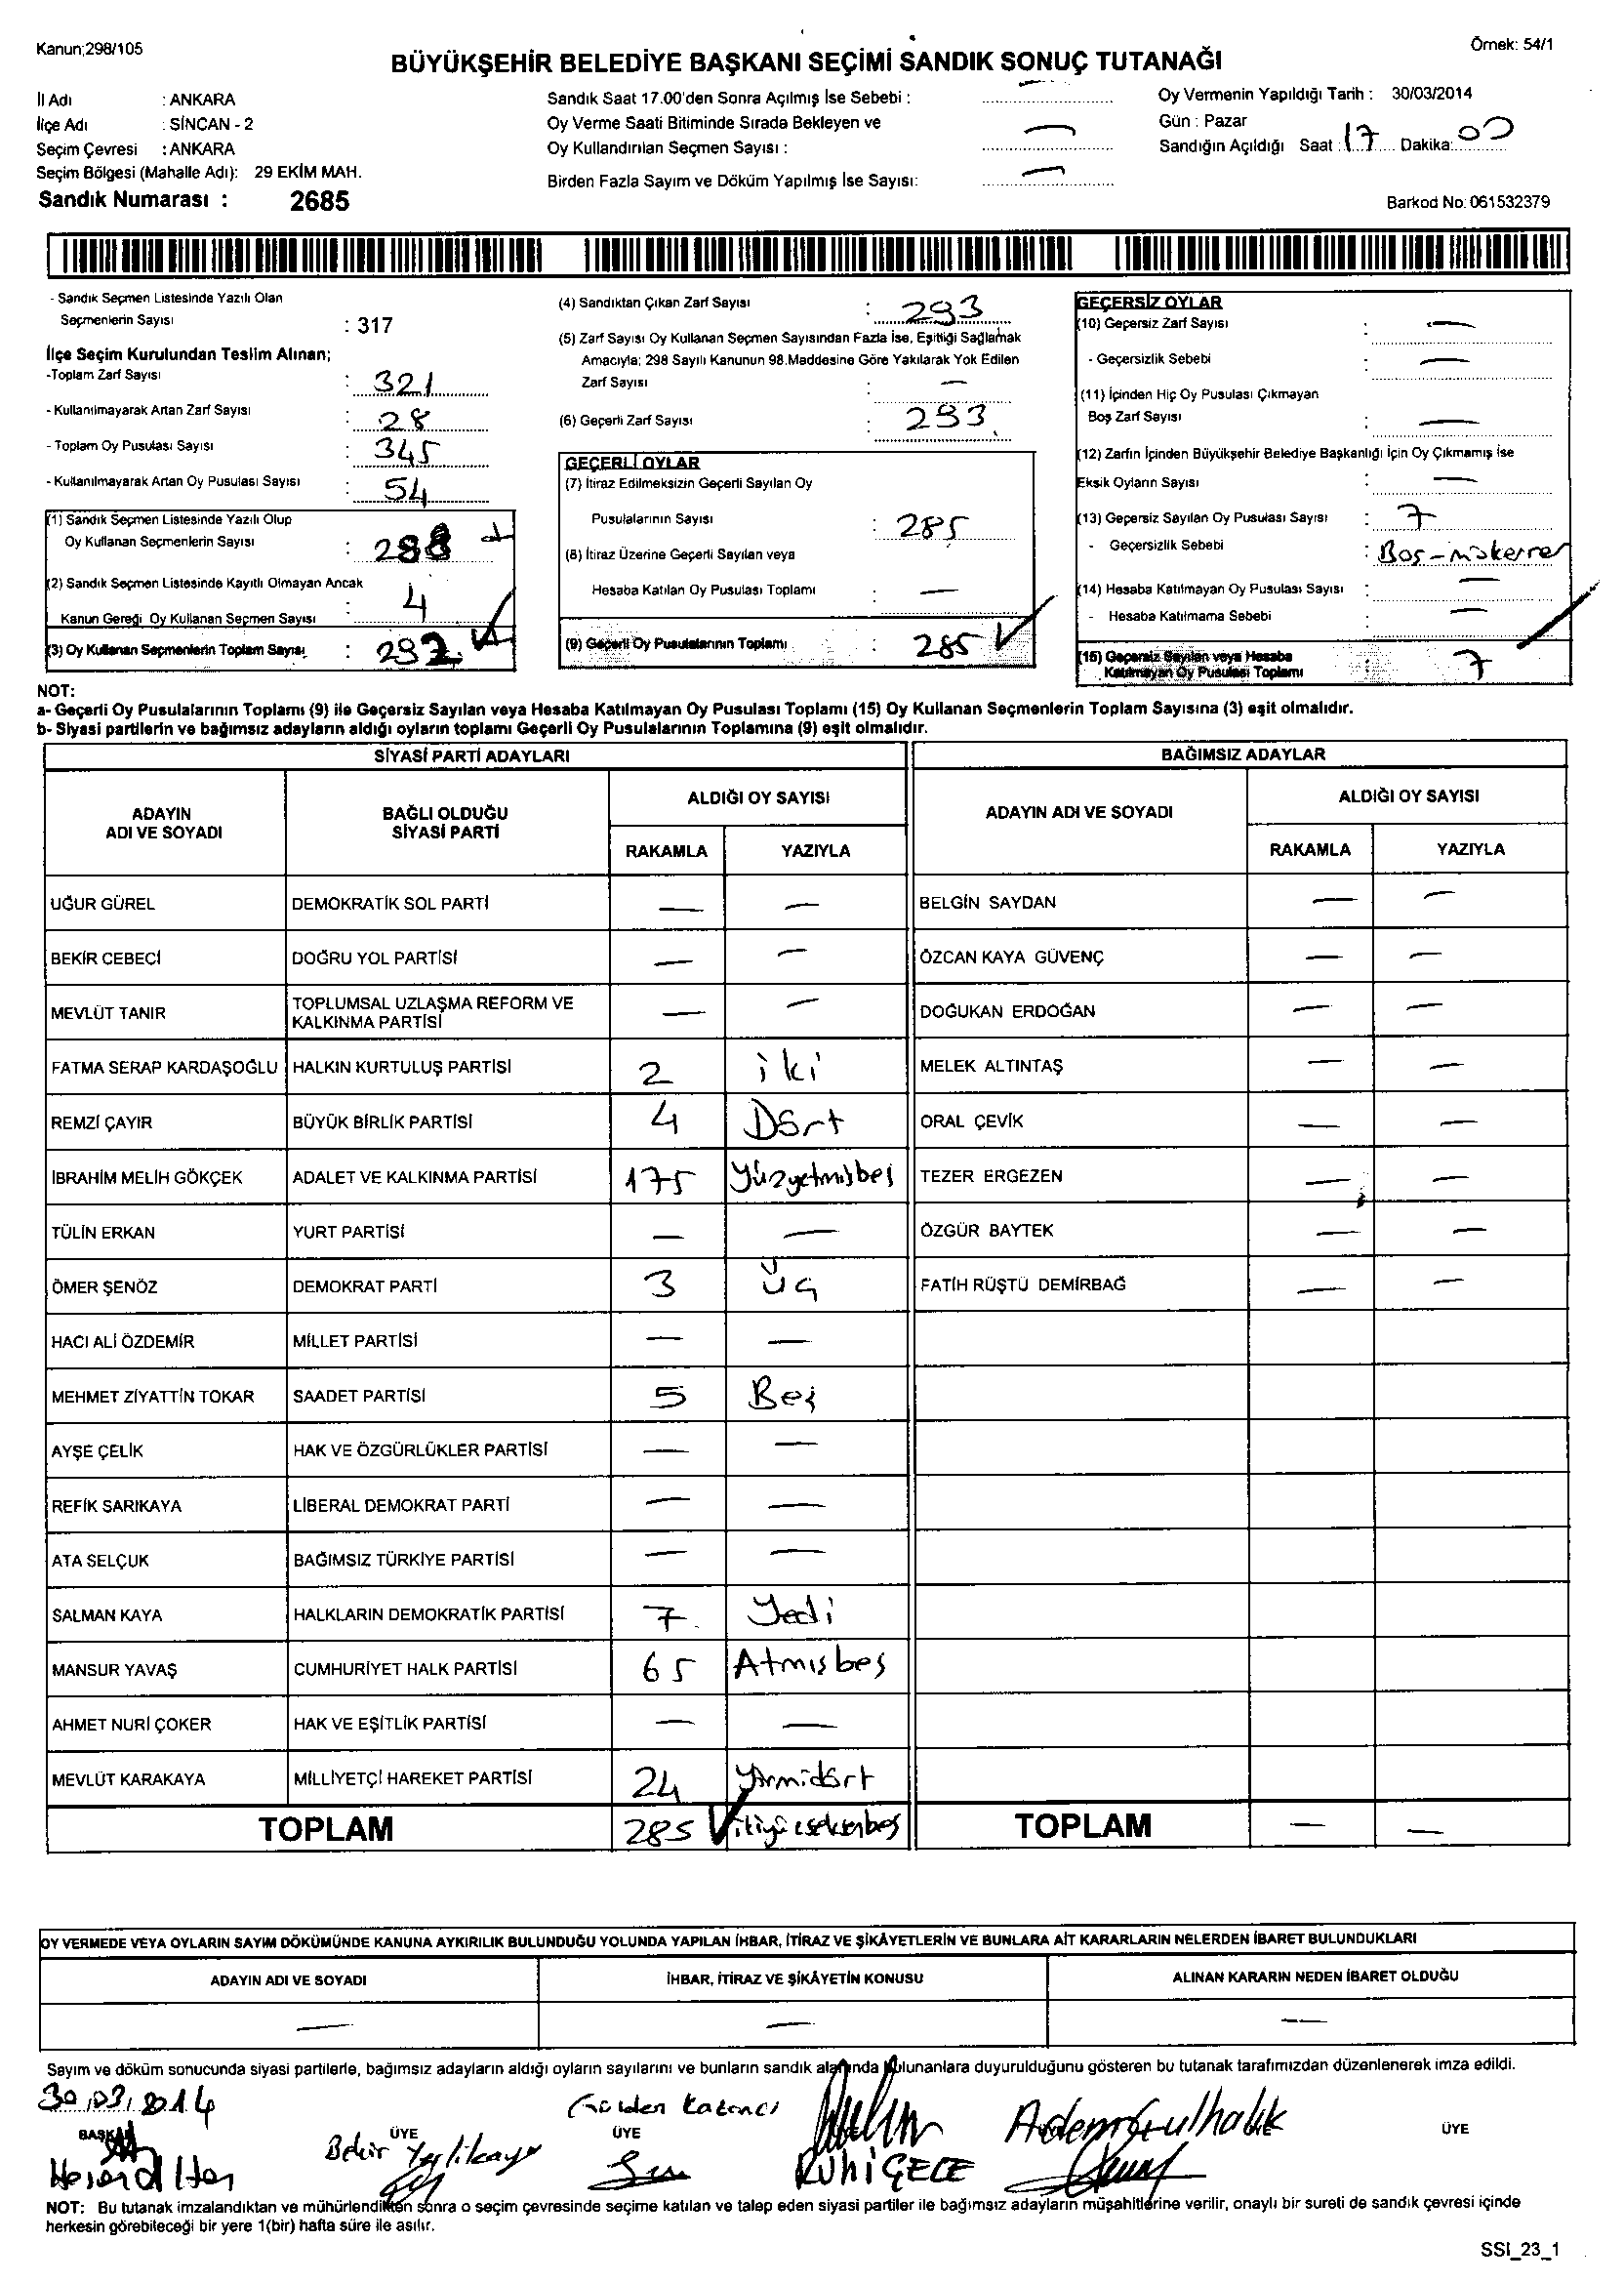 Kanun;298/105
Örnek: 54/1
BÜYÜKŞEHİR BELEDİYE BAŞKANI SEÇİMİ SANDIK SONUÇ TUTANAĞI
İl Adı : ANKARA
İlçe Adı : SİNCAN - 2
Seçim Çevresi : ANKARA
Seçim Bölgesi (Mahalle Adı): 29 EKİM MAH.
Sandık Numarası : 2685
Sandık Saat 17.00'den Sonra Açılmış İse Sebebi : —
Oy Verme Saati Bitiminde Sırada Bekleyen ve
Oy Kullandırılan Seçmen Sayısı : —
Birden Fazla Sayım ve Döküm Yapılmış İse Sayısı: —
Oy Vermenin Yapıldığı Tarih : 30/03/2014
Gün : Pazar
Sandığın Açıldığı Saat : 17 Dakika: 00
Barkod No: 061532379
- Sandık Seçmen Listesinde Yazılı Olan
Seçmenlerin Sayısı : 317
İlçe Seçim Kurulundan Teslim Alınan;
-Toplam Zarf Sayısı : 321
- Kullanılmayarak Artan Zarf Sayısı : 28
- Toplam Oy Pusulası Sayısı : 345
- Kullanılmayarak Artan Oy Pusulası Sayısı : 54
(1) Sandık Seçmen Listesinde Yazılı Olup
Oy Kullanan Seçmenlerin Sayısı : 288
(2) Sandık Seçmen Listesinde Kayıtlı Olmayan Ancak
Kanun Gereği Oy Kullanan Seçmen Sayısı : 4
(3) Oy Kullanan Seçmenlerin Toplam Sayısı : 292
(4) Sandıktan Çıkan Zarf Sayısı : 293
(5) Zarf Sayısı Oy Kullanan Seçmen Sayısından Fazla İse, Eşitliği Sağlamak
Amacıyla; 298 Sayılı Kanunun 98.Maddesine Göre Yakılarak Yok Edilen
Zarf Sayısı : —
(6) Geçerli Zarf Sayısı : 293
GEÇERLİ OYLAR
(7) İtiraz Edilmeksizin Geçerli Sayılan Oy
Pusulalarının Sayısı : 285
(8) İtiraz Üzerine Geçerli Sayılan veya
Hesaba Katılan Oy Pusulası Toplamı : —
(9) Geçerli Oy Pusulalarının Toplamı : 285
GEÇERSİZ OYLAR
(10) Geçersiz Zarf Sayısı : —
- Geçersizlik Sebebi : —
(11) İçinden Hiç Oy Pusulası Çıkmayan
Boş Zarf Sayısı : —
(12) Zarfın İçinden Büyükşehir Belediye Başkanlığı İçin Oy Çıkmamış İse
Eksik Oyların Sayısı : —
(13) Geçersiz Sayılan Oy Pusulası Sayısı : 7
- Geçersizlik Sebebi : Boş-mükerrer
(14) Hesaba Katılmayan Oy Pusulası Sayısı : —
- Hesaba Katılmama Sebebi : —
(15) Geçersiz Sayılan veya Hesaba
Katılmayan Oy Pusulası Toplamı : 7
NOT:
a- Geçerli Oy Pusulalarının Toplamı (9) ile Geçersiz Sayılan veya Hesaba Katılmayan Oy Pusulası Toplamı (15) Oy Kullanan Seçmenlerin Toplam Sayısına (3) eşit olmalıdır.
b- Siyasi partilerin ve bağımsız adayların aldığı oyların toplamı Geçerli Oy Pusulalarının Toplamına (9) eşit olmalıdır.
SİYASİ PARTİ ADAYLARI
ADAYIN ADI VE SOYADI BAĞLI OLDUĞU SİYASİ PARTİ ALDIĞI OY SAYISI
RAKAMLA YAZIYLA
UĞUR GÜREL DEMOKRATİK SOL PARTİ — —
BEKİR CEBECİ DOĞRU YOL PARTİSİ — —
MEVLÜT TANIR TOPLUMSAL UZLAŞMA REFORM VE KALKINMA PARTİSİ — —
FATMA SERAP KARDAŞOĞLU HALKIN KURTULUŞ PARTİSİ 2 iki
REMZİ ÇAYIR BÜYÜK BİRLİK PARTİSİ 4 Dört
İBRAHİM MELİH GÖKÇEK ADALET VE KALKINMA PARTİSİ 175 Yüzyetmişbeş
TÜLİN ERKAN YURT PARTİSİ — —
ÖMER ŞENÖZ DEMOKRAT PARTİ 3 Üç
HACI ALİ ÖZDEMİR MİLLET PARTİSİ — —
MEHMET ZİYATTİN TOKAR SAADET PARTİSİ 5 Beş
AYŞE ÇELİK HAK VE ÖZGÜRLÜKLER PARTİSİ — —
REFİK SARIKAYA LİBERAL DEMOKRAT PARTİ — —
ATA SELÇUK BAĞIMSIZ TÜRKİYE PARTİSİ — —
SALMAN KAYA HALKLARIN DEMOKRATİK PARTİSİ 7 Yedi
MANSUR YAVAŞ CUMHURİYET HALK PARTİSİ 65 Atmışbeş
AHMET NURİ ÇOKER HAK VE EŞİTLİK PARTİSİ — —
MEVLÜT KARAKAYA MİLLİYETÇİ HAREKET PARTİSİ 24 Yirmidört
TOPLAM 285 ikiyüzseksenbeş
BAĞIMSIZ ADAYLAR
ADAYIN ADI VE SOYADI ALDIĞI OY SAYISI
RAKAMLA YAZIYLA
BELGİN SAYDAN — —
ÖZCAN KAYA GÜVENÇ — —
DOĞUKAN ERDOĞAN — —
MELEK ALTINTAŞ — —
ORAL ÇEVİK — —
TEZER ERGEZEN — —
ÖZGÜR BAYTEK — —
FATİH RÜŞTÜ DEMİRBAĞ — —
TOPLAM — —
OY VERMEDE VEYA OYLARIN SAYIM DÖKÜMÜNDE KANUNA AYKIRILIK BULUNDUĞU YOLUNDA YAPILAN İHBAR, İTİRAZ VE ŞİKÂYETLERİN VE BUNLARA AİT KARARLARIN NELERDEN İBARET BULUNDUKLARI
ADAYIN ADI VE SOYADI İHBAR, İTİRAZ VE ŞİKÂYETİN KONUSU ALINAN KARARIN NEDEN İBARET OLDUĞU
— — —
Sayım ve döküm sonucunda siyasi partilerle, bağımsız adayların aldığı oyların sayılarını ve bunların sandık alanında bulunanlara duyurulduğunu gösteren bu tutanak tarafımızdan düzenlenerek imza edildi.
30.03.2014
BAŞKAN ÜYE ÜYE ÜYE
Bekir Yeşilkaya
RUHİ GECE
NOT: Bu tutanak imzalandıktan ve mühürlendikten sonra o seçim çevresinde seçime katılan ve talep eden siyasi partiler ile bağımsız adayların müşahitlerine verilir, onaylı bir sureti de sandık çevresi içinde
herkesin görebileceği bir yere 1(bir) hafta süre ile asılır.
SSI_23_1